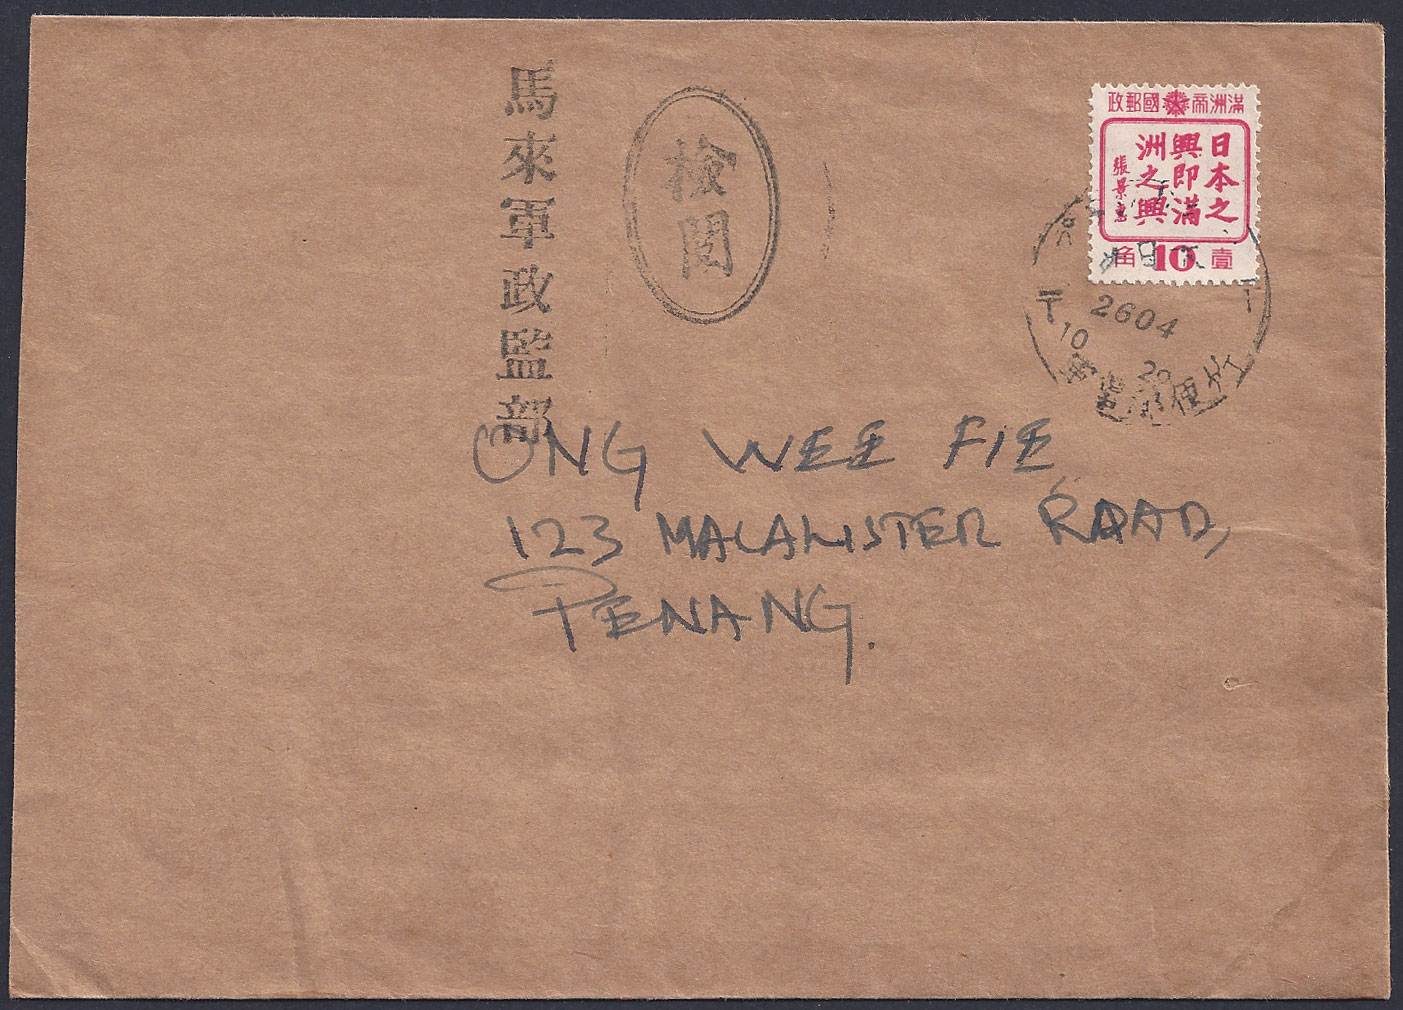 馬來軍政監部
檢閲
滿洲帝國郵政
日本之
興即滿
洲之興
張景惠
壹10角
2604
10
20
ONG WEE FIE
123 MACALISTER ROAD,
PENANG.